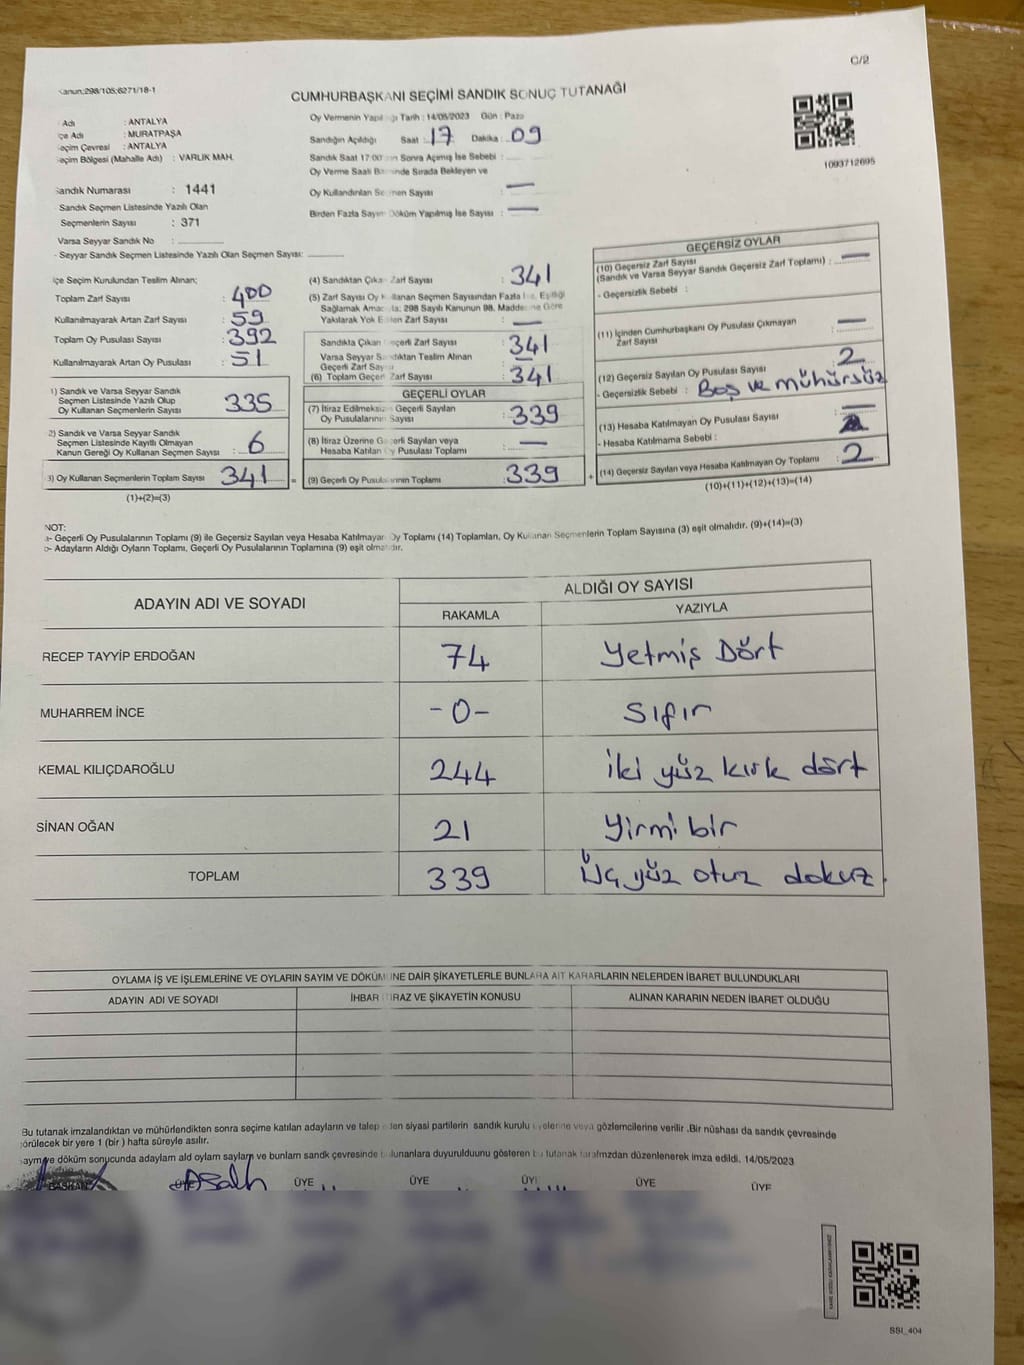 C/2
Kanun:298/105;6271/18-1
CUMHURBAŞKANI SEÇİMİ SANDIK SONUÇ TUTANAĞI
Adı : ANTALYA
çe Adı : MURATPAŞA
eçim Çevresi : ANTALYA
eçim Bölgesi (Mahalle Adı) : VARLIK MAH.
Sandık Numarası : 1441
Sandık Seçmen Listesinde Yazılı Olan
Seçmenlerin Sayısı : 371
Varsa Seyyar Sandık No :
- Seyyar Sandık Seçmen Listesinde Yazılı Olan Seçmen Sayısı:
Oy Vermenin Yapıl ğı Tarih : 14/05/2023 Gün : Paza
Sandığın Açıldığı Saat : 17 Dakika : 09
Sandık Saat 17:00 Sonra Açımış İse Sebebi :
Oy Verme Saati B nde Sırada Bekleyen ve
Oy Kullandırılan Se men Sayısı : —
Birden Fazla Sayım Döküm Yapılmış İse Sayısı : —
1093712695
lçe Seçim Kurulundan Teslim Alınan;
Toplam Zarf Sayısı : 400
Kullanılmayarak Artan Zarf Sayısı : 59
Toplam Oy Pusulası Sayısı : 392
Kullanılmayarak Artan Oy Pusulası : 51
1) Sandık ve Varsa Seyyar Sandık
Seçmen Listesinde Yazılı Olup
Oy Kullanan Seçmenlerin Sayısı : 335
2) Sandık ve Varsa Seyyar Sandık
Seçmen Listesinde Kayıtlı Olmayan
Kanun Gereği Oy Kullanan Seçmen Sayısı : 6
3) Oy Kullanan Seçmenlerin Toplam Sayısı : 341
(1)+(2)=(3)
(4) Sandıktan Çıka Zarf Sayısı : 341
(5) Zarf Sayısı Oy K llanan Seçmen Sayısından Fazla İse, Eşitliği
Sağlamak Amac la; 298 Sayılı Kanunun 98. Maddesine Göre
Yakılarak Yok E len Zarf Sayısı : —
Sandıkta Çıkan çerli Zarf Sayısı : 341
Varsa Seyyar S dıktan Teslim Alınan
Geçerli Zarf Say : —
(6) Toplam Geçer Zarf Sayısı : 341
GEÇERLİ OYLAR
(7) İtiraz Edilmeksiz Geçerli Sayılan
Oy Pusulalarının Sayısı : 339
(8) İtiraz Üzerine G erli Sayılan veya
Hesaba Katılan Oy Pusulası Toplamı : —
(9) Geçerli Oy Pusulalarının Toplamı : 339
GEÇERSİZ OYLAR
(10) Geçersiz Zarf Sayısı
(Sandık ve Varsa Seyyar Sandık Geçersiz Zarf Toplamı) : —
- Geçersizlik Sebebi :
(11) İçinden Cumhurbaşkanı Oy Pusulası Çıkmayan
Zarf Sayısı : —
(12) Geçersiz Sayılan Oy Pusulası Sayısı : 2
- Geçersizlik Sebebi : Boş ve mühürsüz
(13) Hesaba Katılmayan Oy Pusulası Sayısı : —
- Hesaba Katılmama Sebebi :
(14) Geçersiz Sayılan veya Hesaba Katılmayan Oy Toplamı : 2
(10)+(11)+(12)+(13)=(14)
NOT:
a- Geçerli Oy Pusulalarının Toplamı (9) ile Geçersiz Sayılan veya Hesaba Katılmayan Oy Toplamı (14) Toplamları, Oy Kullanan Seçmenlerin Toplam Sayısına (3) eşit olmalıdır. (9)+(14)=(3)
b- Adayların Aldığı Oyların Toplamı, Geçerli Oy Pusulalarının Toplamına (9) eşit olmalıdır.
ADAYIN ADI VE SOYADI ALDIĞI OY SAYISI
RAKAMLA YAZIYLA
RECEP TAYYİP ERDOĞAN 74 Yetmiş Dört
MUHARREM İNCE -0- Sıfır
KEMAL KILIÇDAROĞLU 244 iki yüz kırk dört
SİNAN OĞAN 21 Yirmi bir
TOPLAM 339 Üç yüz otuz dokuz.
OYLAMA İŞ VE İŞLEMLERİNE VE OYLARIN SAYIM VE DÖKÜMÜNE DAİR ŞİKAYETLERLE BUNLARA AİT KARARLARIN NELERDEN İBARET BULUNDUKLARI
ADAYIN ADI VE SOYADI İHBAR İTİRAZ VE ŞİKAYETİN KONUSU ALINAN KARARIN NEDEN İBARET OLDUĞU
Bu tutanak imzalandıktan ve mühürlendikten sonra seçime katılan adayların ve talep eden siyasi partilerin sandık kurulu üyelerine veya gözlemcilerine verilir .Bir nüshası da sandık çevresinde
örülecek bir yere 1 (bir ) hafta süreyle asılır.
aym ve döküm sonucunda adaylam ald oylam saylam ve bunlam sandk çevresinde bulunanlara duyurulduunu gösteren bu tutanak tarafmzdan düzenlenerek imza edildi. 14/05/2023
BAŞKAN ÜYE ÜYE ÜYE ÜYE ÜYE
SSI_404